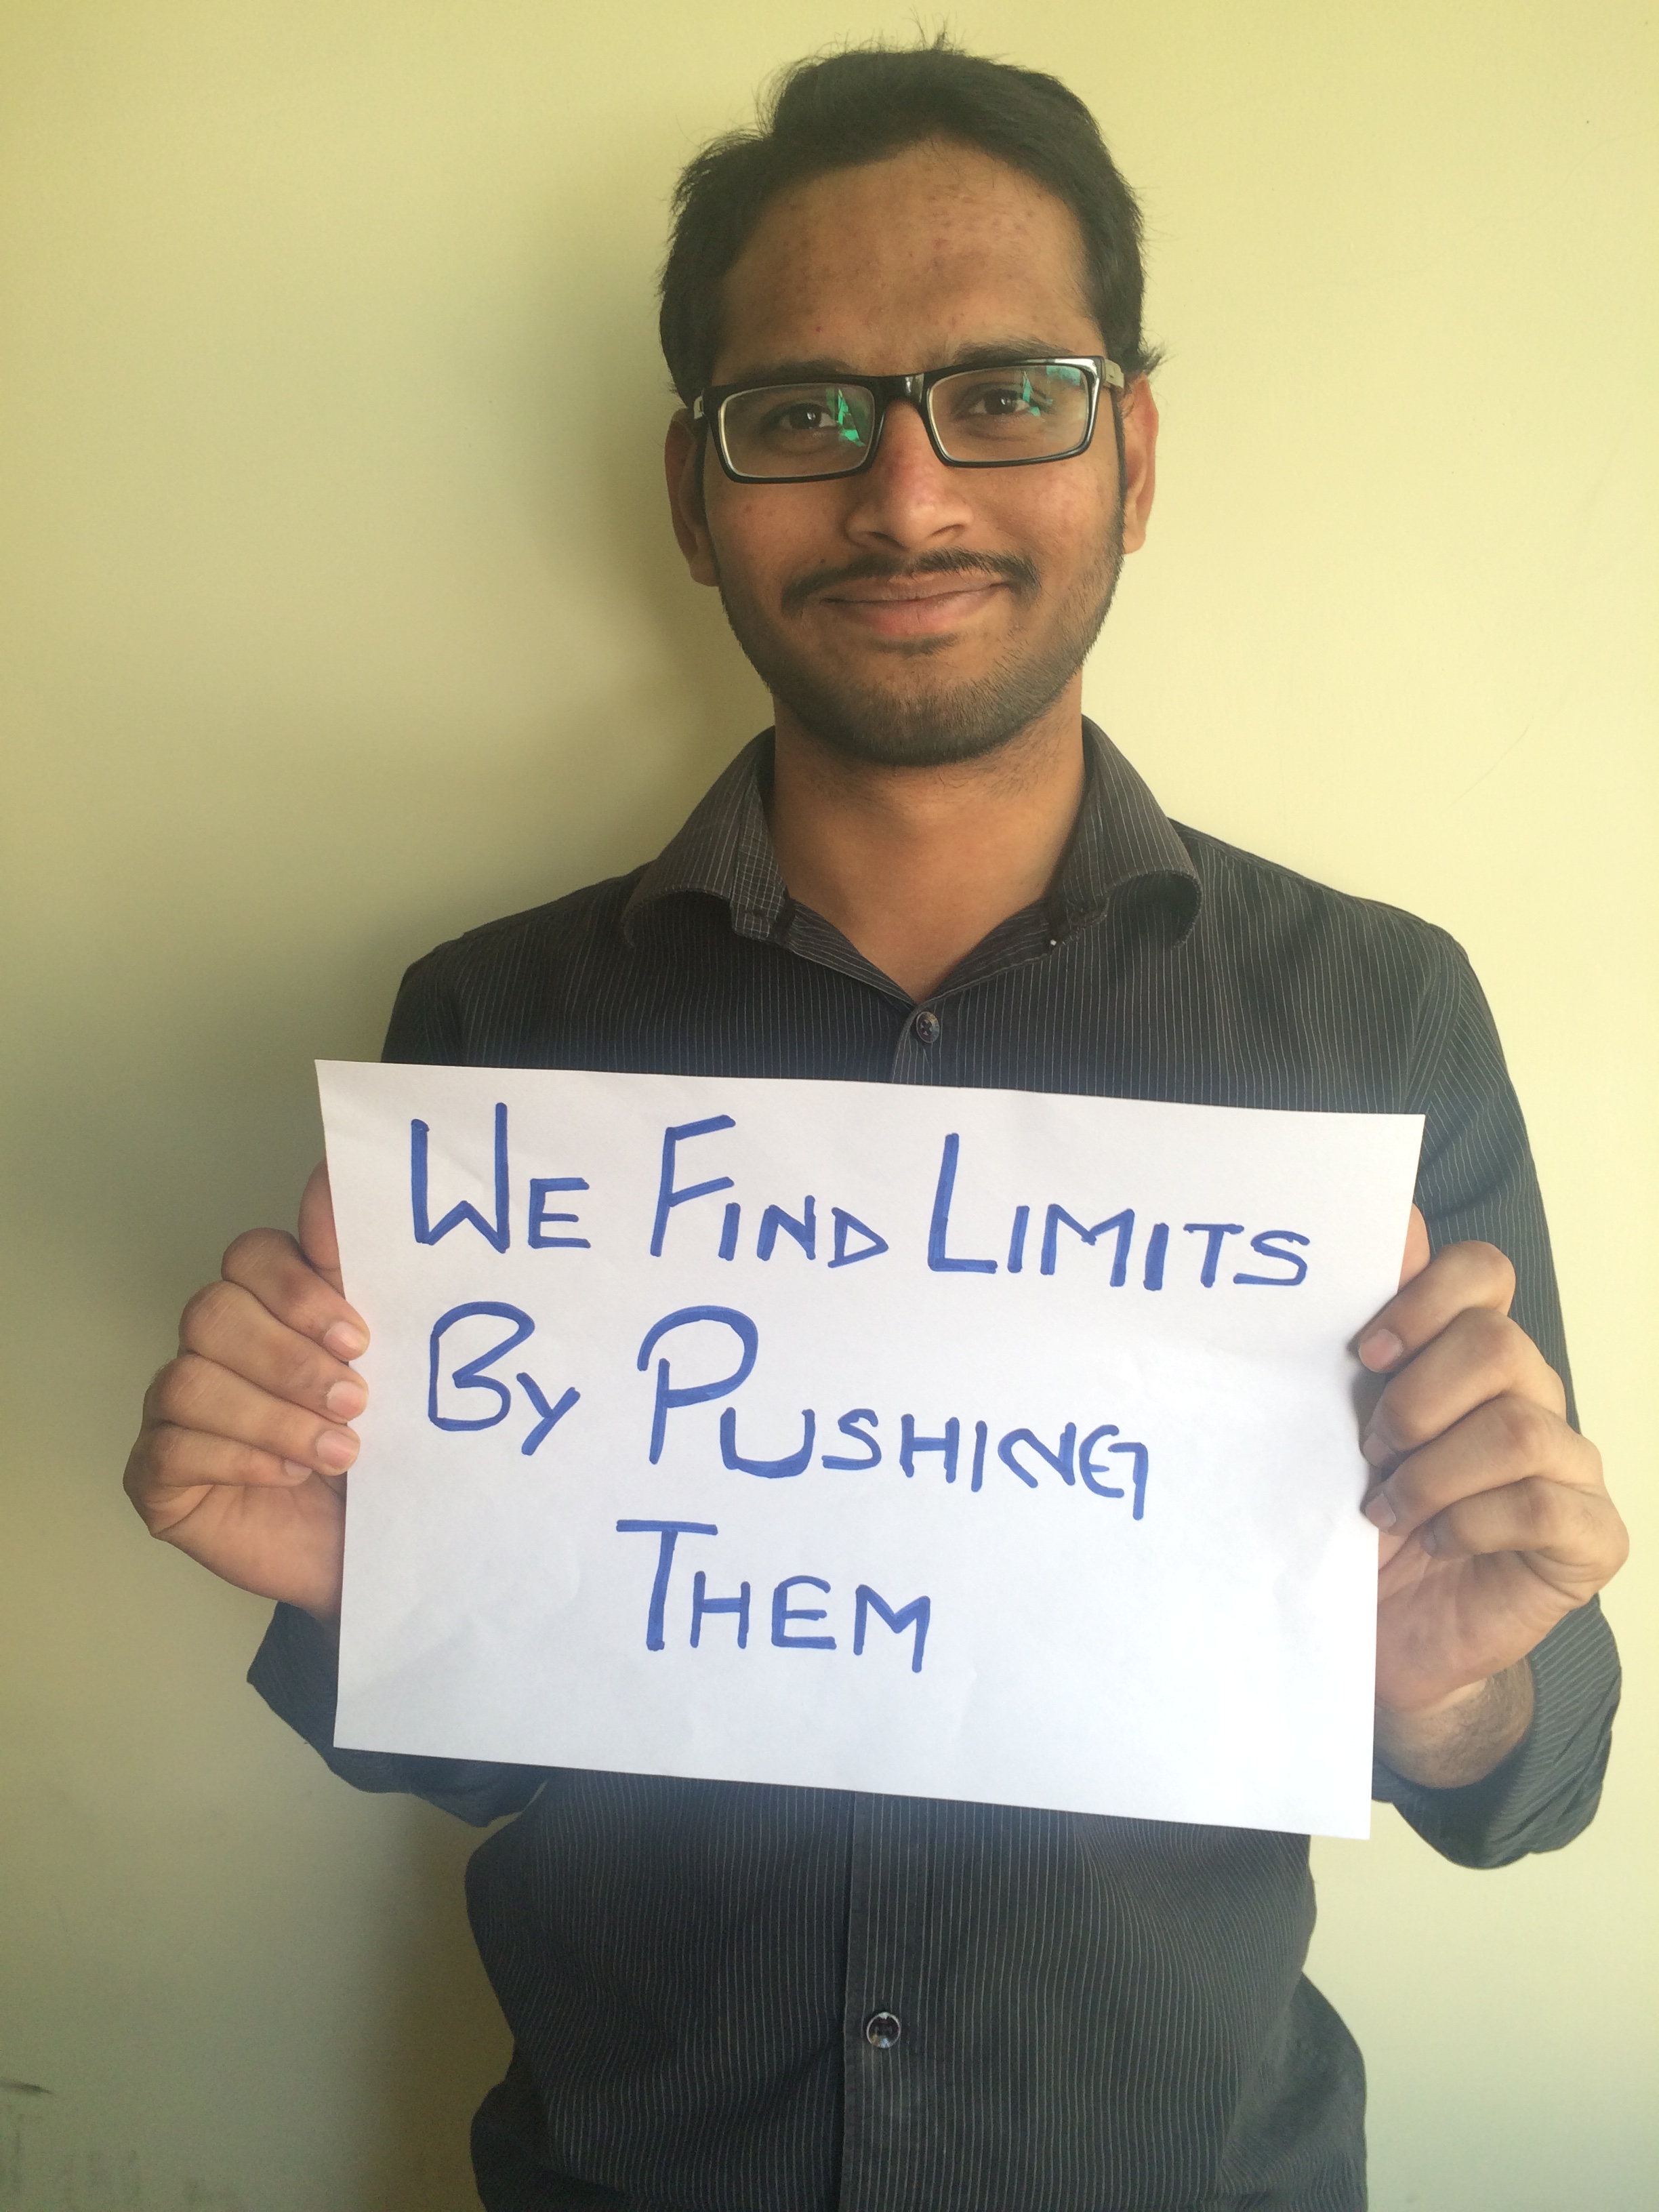 We Find Limits
By Pushing
Them